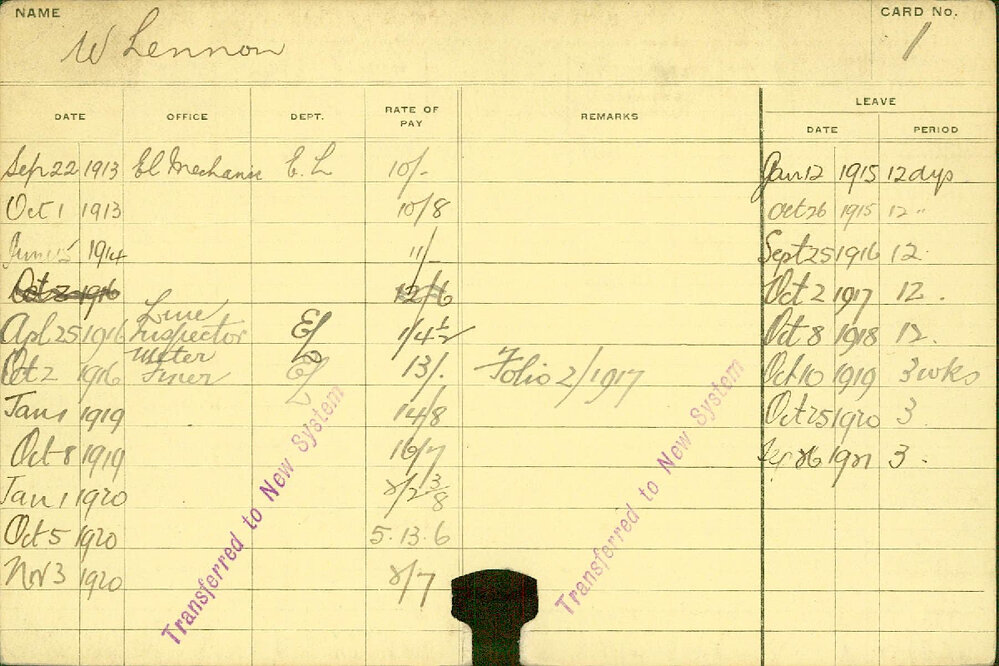 NAME
CARD No.
W Lennon
1
LEAVE
DATE OFFICE DEPT. RATE OF PAY REMARKS DATE PERIOD
Sep 22 1913 El Mechanic E. L 10/- Jan 12 1915 12 dys
Oct 1 1913 10/8 Oct 26 1915 12 "
June 1914 11/- Sept 25 1916 12 .
Oct 2 1916 12/6 Oct 2 1917 12 .
Line
Apl 25 1916 Inspector El 1/4½ Oct 8 1918 12 .
Meter
Oct 2 1916 El 13/. Folio 2/1917 Oct 10 1919 3 wks
Jan 1 1919 14/8 Oct 25 1920 3 .
Oct 8 1919 16/7 Sep 26 1921 3 .
Jan 1 1920 2/2 3/8
Oct 5 1920 5. 13. 6
Nov 3 1920 2/7
Transferred to New System
Transferred to New System